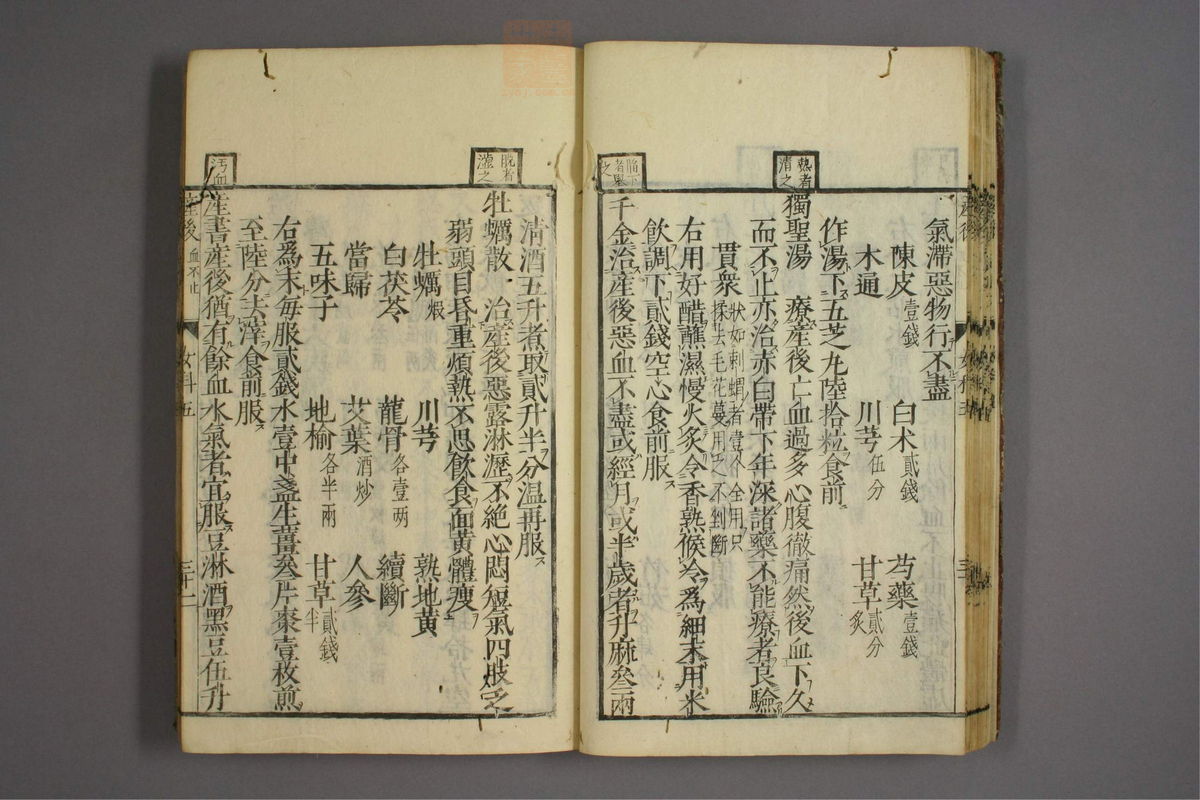 氣滯惡物行不盡
陳皮壹錢 白朮貳錢 芍藥壹錢
木通 川芎伍分 甘草貳分炙
作湯下五芝丸陸拾粒食前
熱者清之
獨聖湯 療產後亡血過多心腹徹痛然後血下久
而不止亦治赤白帶下年深諸藥不能療者良驗
貫衆狀如刺蝟者壹个全用只揉去毛花萼用之不剉斷
右用好醋蘸濕慢火炙令香熟候冷爲細末用米
飲調下貳錢空心食前服
陷下者舉之
千金治產後惡血不盡或經月或半歲者升麻叁兩
清酒五升煮取貳升半分溫再服
脫者澁之
牡蠣散 治產後惡露淋瀝不絶心悶短氣四肢乏
弱頭目昏重煩熱不思飲食面黃體瘦
牡蠣煅 川芎 熟地黃
白茯苓 龍骨各壹兩 續斷
當歸 艾葉酒炒 人參
五味子 地榆各半兩 甘草貳錢半
右爲末每服貳錢水壹中盞生薑叁片棗壹枚煎
至陸分去滓食前服
汚血
產書產後猶有餘血水氣者宜服豆淋酒黑豆伍升
產後 血不止 女科五 三十二